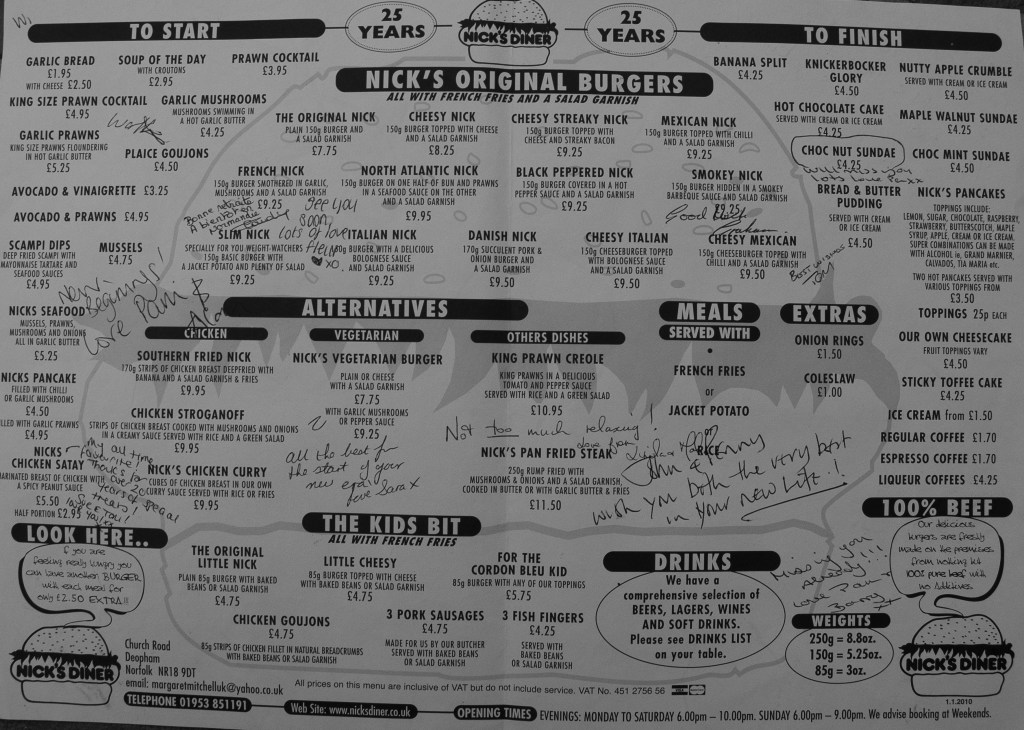 TO START
GARLIC BREAD
£1.95
WITH CHEESE £2.50
SOUP OF THE DAY
WITH CROUTONS
£2.95
PRAWN COCKTAIL
£3.95
KING SIZE PRAWN COCKTAIL
£4.95
GARLIC MUSHROOMS
MUSHROOMS SWIMMING IN
A HOT GARLIC BUTTER
£4.25
GARLIC PRAWNS
KING SIZE PRAWNS FLOUNDERING
IN HOT GARLIC BUTTER
£5.25
PLAICE GOUJONS
£4.50
AVOCADO & VINAIGRETTE £3.25
AVOCADO & PRAWNS £4.95
SCAMPI DIPS
DEEP FRIED SCAMPI WITH
MAYONNAISE TARTARE AND
SEAFOOD SAUCES
£4.95
MUSSELS
£4.75
NICKS SEAFOOD
MUSSELS, PRAWNS,
MUSHROOMS AND ONIONS
ALL IN GARLIC BUTTER
£5.25
NICKS PANCAKE
FILLED WITH CHILLI
OR GARLIC MUSHROOMS
£4.50
FILLED WITH GARLIC PRAWNS
£4.95
NICKS
CHICKEN SATAY
MARINATED BREAST OF CHICKEN WITH
A SPICY PEANUT SAUCE
£5.50
HALF PORTION £2.95
New
Beginnings!
Love Pam
My all time
favourite!
25 YEARS
NICK'S DINER
25 YEARS
NICK'S ORIGINAL BURGERS
ALL WITH FRENCH FRIES AND A SALAD GARNISH
THE ORIGINAL NICK
PLAIN 150g BURGER AND
A SALAD GARNISH
£7.75
CHEESY NICK
150g BURGER TOPPED WITH CHEESE
AND A SALAD GARNISH
£8.25
CHEESY STREAKY NICK
150g BURGER TOPPED WITH
CHEESE AND STREAKY BACON
£9.25
MEXICAN NICK
150g BURGER TOPPED WITH CHILLI
AND A SALAD GARNISH
£9.25
FRENCH NICK
150g BURGER SMOTHERED IN GARLIC,
MUSHROOMS AND A SALAD GARNISH
£9.25
NORTH ATLANTIC NICK
150g BURGER ON ONE HALF OF BUN AND PRAWNS
IN A SEAFOOD SAUCE ON THE OTHER
AND A SALAD GARNISH
£9.95
BLACK PEPPERED NICK
150g BURGER COVERED IN A HOT
PEPPER SAUCE AND A SALAD GARNISH
£9.50
SMOKEY NICK
150g BURGER HIDDEN IN A SMOKEY
BARBEQUE SAUCE AND SALAD GARNISH
£9.25
SLIM NICK
SPECIALLY FOR YOU WEIGHT-WATCHERS
150g BASIC BURGER WITH
A JACKET POTATO AND PLENTY OF SALAD
£9.25
ITALIAN NICK
150g BURGER WITH A DELICIOUS
BOLOGNESE SAUCE
AND SALAD GARNISH
£9.25
DANISH NICK
170g SUCCULENT PORK &
ONION BURGER AND
A SALAD GARNISH
£9.50
CHEESY ITALIAN
150g CHEESEBURGER TOPPED
WITH BOLOGNESE SAUCE
AND SALAD GARNISH
£9.50
CHEESY MEXICAN
150g CHEESEBURGER TOPPED WITH
CHILLI AND A SALAD GARNISH
£9.50
Bonne retraite
A bientôt en
Normandie
See you
soon
lots of love
Helen
xo
Good Luck
Graham
Best wishes
Tom
ALTERNATIVES
CHICKEN
SOUTHERN FRIED NICK
170g STRIPS OF CHICKEN BREAST DEEPFRIED WITH
BANANA AND A SALAD GARNISH & FRIES
£9.95
CHICKEN STROGANOFF
STRIPS OF CHICKEN BREAST COOKED WITH MUSHROOMS AND ONIONS
IN A CREAMY SAUCE SERVED WITH RICE AND A GREEN SALAD
£9.95
NICK'S CHICKEN CURRY
CUBES OF CHICKEN BREAST IN OUR OWN
CURRY SAUCE SERVED WITH RICE OR FRIES
£9.95
VEGETARIAN
NICK'S VEGETARIAN BURGER
PLAIN OR CHEESE
WITH A SALAD GARNISH
£7.75
WITH GARLIC MUSHROOMS
or PEPPER SAUCE
£9.25
all the best for
the start of your
new era!
love Sara x
OTHERS DISHES
KING PRAWN CREOLE
KING PRAWNS IN A DELICIOUS
TOMATO AND PEPPER SAUCE
SERVED WITH RICE AND A GREEN SALAD
£10.95
Not too much relaxing!
love from
NICK'S PAN FRIED STEAK
250g RUMP FRIED WITH
MUSHROOMS & ONIONS AND A SALAD GARNISH,
COOKED IN BUTTER OR WITH GARLIC BUTTER & FRIES
£11.50
MEALS
SERVED WITH
FRENCH FRIES
or
JACKET POTATO
or
RICE
John & Penny
wish you both the very best
in your new life!!
EXTRAS
ONION RINGS
£1.50
COLESLAW
£1.00
TO FINISH
BANANA SPLIT
£4.25
KNICKERBOCKER
GLORY
£4.50
NUTTY APPLE CRUMBLE
SERVED WITH CREAM OR ICE CREAM
£4.50
HOT CHOCOLATE CAKE
SERVED WITH CREAM OR ICE CREAM
£4.25
MAPLE WALNUT SUNDAE
£4.25
CHOC NUT SUNDAE
£4.25
CHOC MINT SUNDAE
£4.50
BREAD & BUTTER
PUDDING
SERVED WITH CREAM
OR ICE CREAM
£4.50
NICK'S PANCAKES
TOPPINGS INCLUDE:
LEMON, SUGAR, CHOCOLATE, RASPBERRY,
STRAWBERRY, BUTTERSCOTCH, MAPLE
SYRUP, APPLE, CREAM OR ICE CREAM.
SUPER COMBINATIONS CAN BE MADE
WITH ALCOHOL ie, GRAND MARNIER,
CALVADOS, TIA MARIA etc.
TWO HOT PANCAKES SERVED WITH
VARIOUS TOPPINGS FROM
£3.50
TOPPINGS 25p EACH
OUR OWN CHEESECAKE
FRUIT TOPPINGS VARY
£4.50
STICKY TOFFEE CAKE
£4.25
ICE CREAM from £1.50
REGULAR COFFEE £1.70
ESPRESSO COFFEE £1.70
LIQUEUR COFFEES £4.25
LOOK HERE..
If you are
feeling really hungry you
can have another BURGER
with each meal for
only £2.50 EXTRA!!!
NICK'S DINER
THE KIDS BIT
ALL WITH FRENCH FRIES
THE ORIGINAL
LITTLE NICK
PLAIN 85g BURGER WITH BAKED
BEANS OR SALAD GARNISH
£4.75
LITTLE CHEESY
85g BURGER TOPPED WITH CHEESE
WITH BAKED BEANS OR SALAD GARNISH
£4.75
FOR THE
CORDON BLEU KID
85g BURGER WITH ANY OF OUR TOPPINGS
£5.75
CHICKEN GOUJONS
£4.75
85g STRIPS OF CHICKEN FILLET IN NATURAL BREADCRUMBS
WITH BAKED BEANS OR SALAD GARNISH
3 PORK SAUSAGES
£4.75
MADE FOR US BY OUR BUTCHER
SERVED WITH BAKED BEANS
OR SALAD GARNISH
3 FISH FINGERS
£4.25
SERVED WITH
BAKED BEANS
OR SALAD GARNISH
DRINKS
We have a
comprehensive selection of
BEERS, LAGERS, WINES
AND SOFT DRINKS.
Please see DRINKS LIST
on your table.
Miss you
already!!!
Love Pam +
Barry xx
WEIGHTS
250g = 8.8oz.
150g = 5.25oz.
85g = 3oz.
100% BEEF
Our delicious
burgers are freshly
made on the premises
from nothing but
100% pure beef with
no Additives.
NICK'S DINER
1.1.2010
Church Road
Deopham
Norfolk NR18 9DT
email: margaretmitchelluk@yahoo.co.uk
TELEPHONE 01953 851191
All prices on this menu are inclusive of VAT but do not include service. VAT No. 451 2756 56
Web Site: www.nicksdiner.co.uk
OPENING TIMES EVENINGS: MONDAY TO SATURDAY 6.00pm – 10.00pm. SUNDAY 6.00pm – 9.00pm. We advise booking at Weekends.